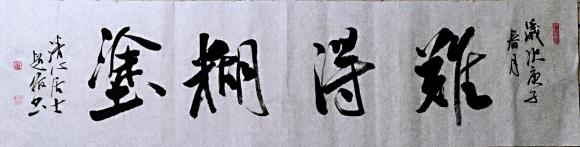 歲次庚子
春月
難得糊塗
清心居士